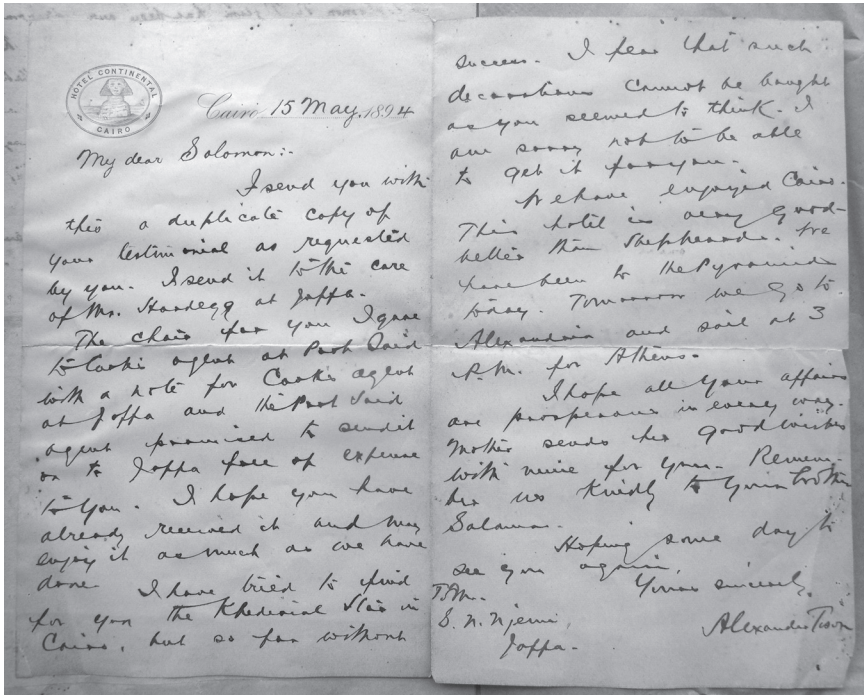 HOTEL CONTINENTAL
CAIRO
Cairo, 15 May, 1894
My dear Solomon:-
I send you with
this a duplicate copy of
your testimonial as requested
by you. I send it to the care
of Mr. Hardegg at Joppa.
The chair for you I gave
to Cooks agent at Port Said
with a note for Cooks agent
at Joppa and the Port Said
agent promised to send it
on to Joppa free of expense
to you. I hope you have
already received it and may
enjoy it as much as we have
done. I have tried to find
for you the Khedivial Star in
Cairo, but so far without
success. I fear that such
decorations cannot be bought
as you seemed to think. I
am sorry not to be able
to get it for you.
We have enjoyed Cairo.
This hotel is very good-
better than Shepheards. We
have been to the Pyramids
today. Tomorrow we go to
Alexandria and sail at 3
P.M. for Athens.
I hope all your affairs
are prosperous in every way.
Mother sends her good wishes
with mine for you. Remem-
ber us kindly to your brother
Solomon.
Hoping some day to
see you again,
Yours sincerely,
Alexander
S. N. Njemi,
Joppa.